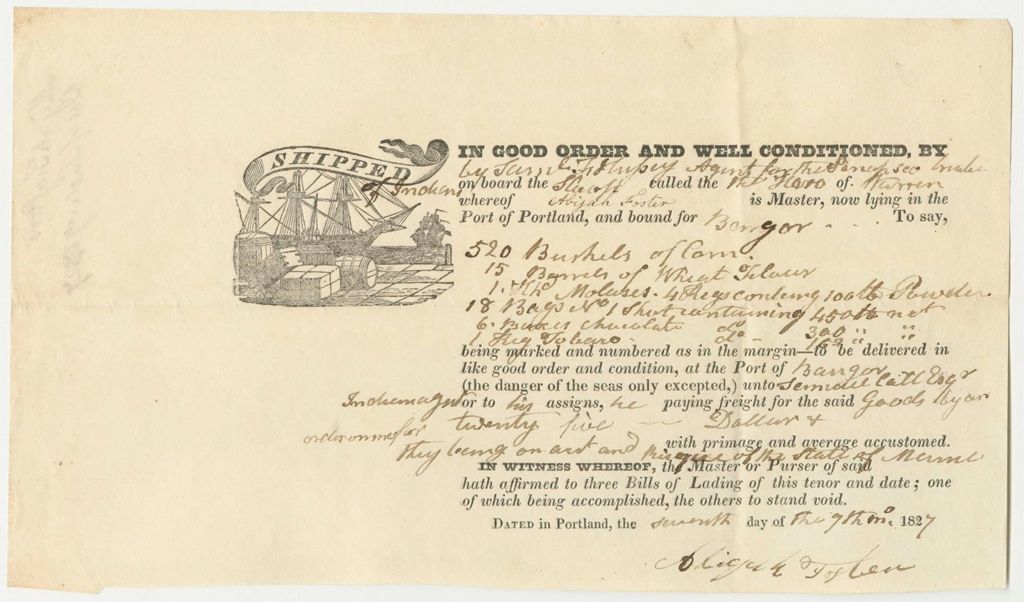 SHIPPED
IN GOOD ORDER AND WELL CONDITIONED, BY
by Saml F Hussey Agent for the Penobscot tribe
of Indians on board the Sloop called the the Hero of Warren
whereof Abijah Foster is Master, now lying in the
Port of Portland, and bound for Bangor To say,
520 Bushels of Corn.
15 Barrels of Wheat Flour
1 Hhd Molases. 4 Kegs containg 100 lb Powder
18 Bags No 1 Shot containing 450 lb net
6 Boxes Chocolate do 300 " "
1 Keg Tobaco do 162 " "
being marked and numbered as in the margin—to be delivered in
like good order and condition, at the Port of Bangor
(the danger of the seas only excepted,) unto Samuel Call Esqr
Indian agent or to his assigns, he paying freight for the said Goods by an
order on me for twenty five Dollars &
they being on act and risque of the State of Maine with primage and average accustomed.
IN WITNESS WHEREOF, the Master or Purser of said
hath affirmed to three Bills of Lading of this tenor and date; one
of which being accomplished, the others to stand void.
DATED in Portland, the seventh day of the 9th mo. 1827
Abijah Foster